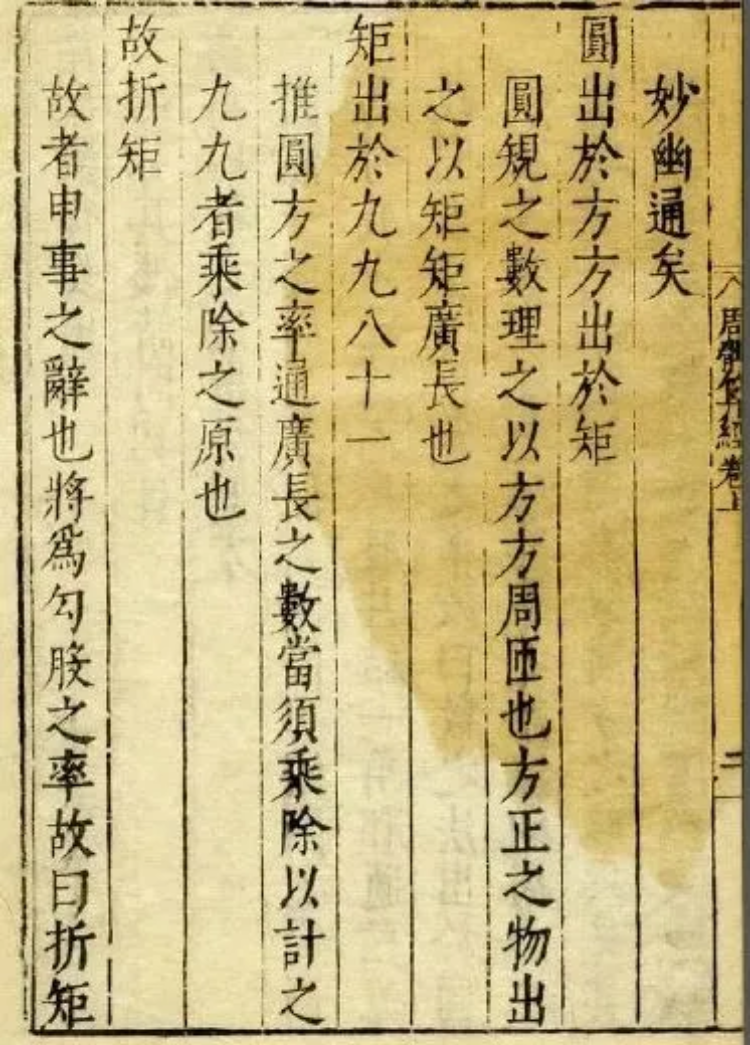 周髀算經卷上
二
妙幽通矣
圓出於方方出於矩
圓規之數理之以方方周匝也方正之物出
之以矩矩廣長也
矩出於九九八十一
推圓方之率通廣長之數當須乘除以計之
九九者乘除之原也
故折矩
故者申事之辭也將爲勾股之率故曰折矩